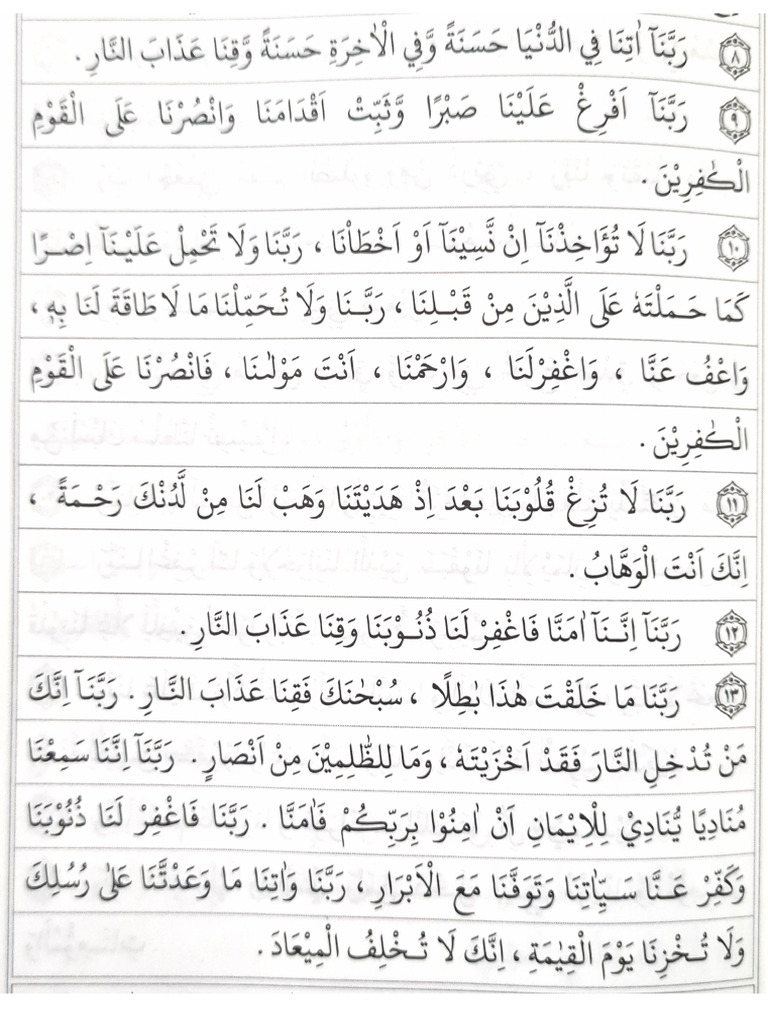 ﴿٨﴾ رَبَّنَآ اٰتِنَا فِي الدُّنْيَا حَسَنَةً وَّفِي الْاٰخِرَةِ حَسَنَةً وَّقِنَا عَذَابَ النَّارِ .
﴿٩﴾ رَبَّنَآ اَفْرِغْ عَلَيْنَا صَبْرًا وَّثَبِّتْ اَقْدَامَنَا وَانْصُرْنَا عَلَى الْقَوْمِ
الْكٰفِرِيْنَ .
﴿١٠﴾ رَبَّنَا لَا تُؤَاخِذْنَآ اِنْ نَّسِيْنَآ اَوْ اَخْطَاْنَا ، رَبَّنَا وَلَا تَحْمِلْ عَلَيْنَآ اِصْرًا
كَمَا حَمَلْتَهٗ عَلَى الَّذِيْنَ مِنْ قَبْلِنَا ، رَبَّنَا وَلَا تُحَمِّلْنَا مَا لَا طَاقَةَ لَنَا بِهٖ ،
وَاعْفُ عَنَّا ، وَاغْفِرْلَنَا ، وَارْحَمْنَا ، اَنْتَ مَوْلٰىنَا ، فَانْصُرْنَا عَلَى الْقَوْمِ
الْكٰفِرِيْنَ .
﴿١١﴾ رَبَّنَا لَا تُزِغْ قُلُوْبَنَا بَعْدَ اِذْ هَدَيْتَنَا وَهَبْ لَنَا مِنْ لَّدُنْكَ رَحْمَةً ،
اِنَّكَ اَنْتَ الْوَهَّابُ .
﴿١٢﴾ رَبَّنَآ اِنَّنَآ اٰمَنَّا فَاغْفِرْ لَنَا ذُنُوْبَنَا وَقِنَا عَذَابَ النَّارِ .
﴿١٣﴾ رَبَّنَا مَا خَلَقْتَ هٰذَا بٰطِلًا ، سُبْحٰنَكَ فَقِنَا عَذَابَ النَّارِ . رَبَّنَآ اِنَّكَ
مَنْ تُدْخِلِ النَّارَ فَقَدْ اَخْزَيْتَهٗ ، وَمَا لِلظّٰلِمِيْنَ مِنْ اَنْصَارٍ . رَبَّنَآ اِنَّنَا سَمِعْنَا
مُنَادِيًا يُّنَادِيْ لِلْاِيْمَانِ اَنْ اٰمِنُوْا بِرَبِّكُمْ فَاٰمَنَّا . رَبَّنَا فَاغْفِرْ لَنَا ذُنُوْبَنَا
وَكَفِّرْ عَنَّا سَيِّاٰتِنَا وَتَوَفَّنَا مَعَ الْاَبْرَارِ ، رَبَّنَا وَاٰتِنَا مَا وَعَدْتَّنَا عَلٰى رُسُلِكَ
وَلَا تُخْزِنَا يَوْمَ الْقِيٰمَةِ ، اِنَّكَ لَا تُخْلِفُ الْمِيْعَادَ .